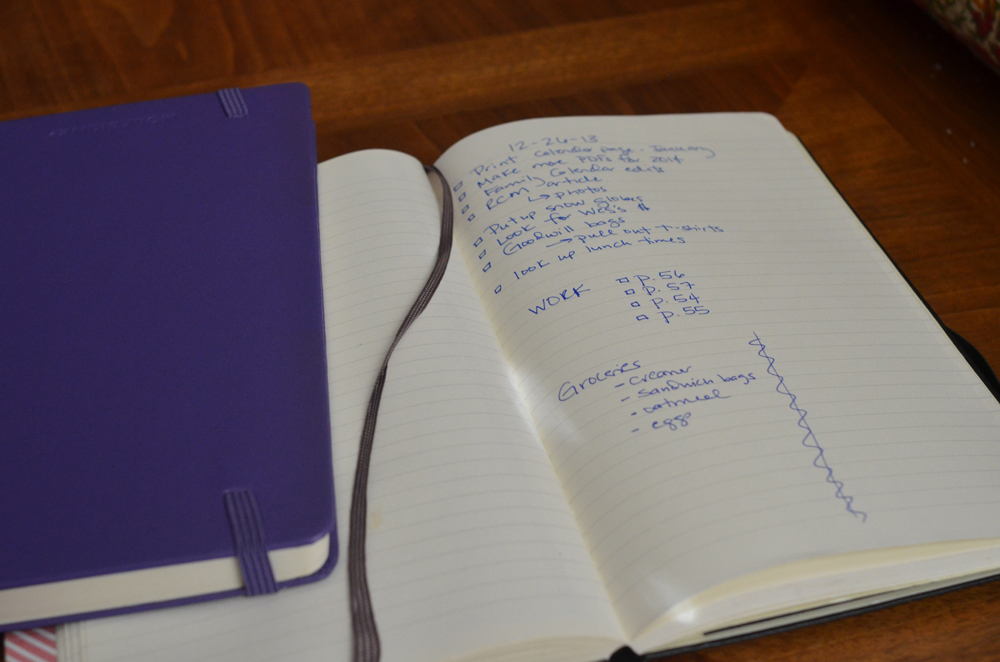 12-26-13
Print calendar page - January
Make more PDFs for 2014
Family Calendar edits
RCM article
↳ photos
Put up snow globes
Look for Wes's #
Goodwill bags
→ pull out t-shirts
look up lunch times
WORK
p. 56
p. 57
p. 54
p. 55
Groceries
- creamer
- sandwich bags
- oatmeal
- eggs